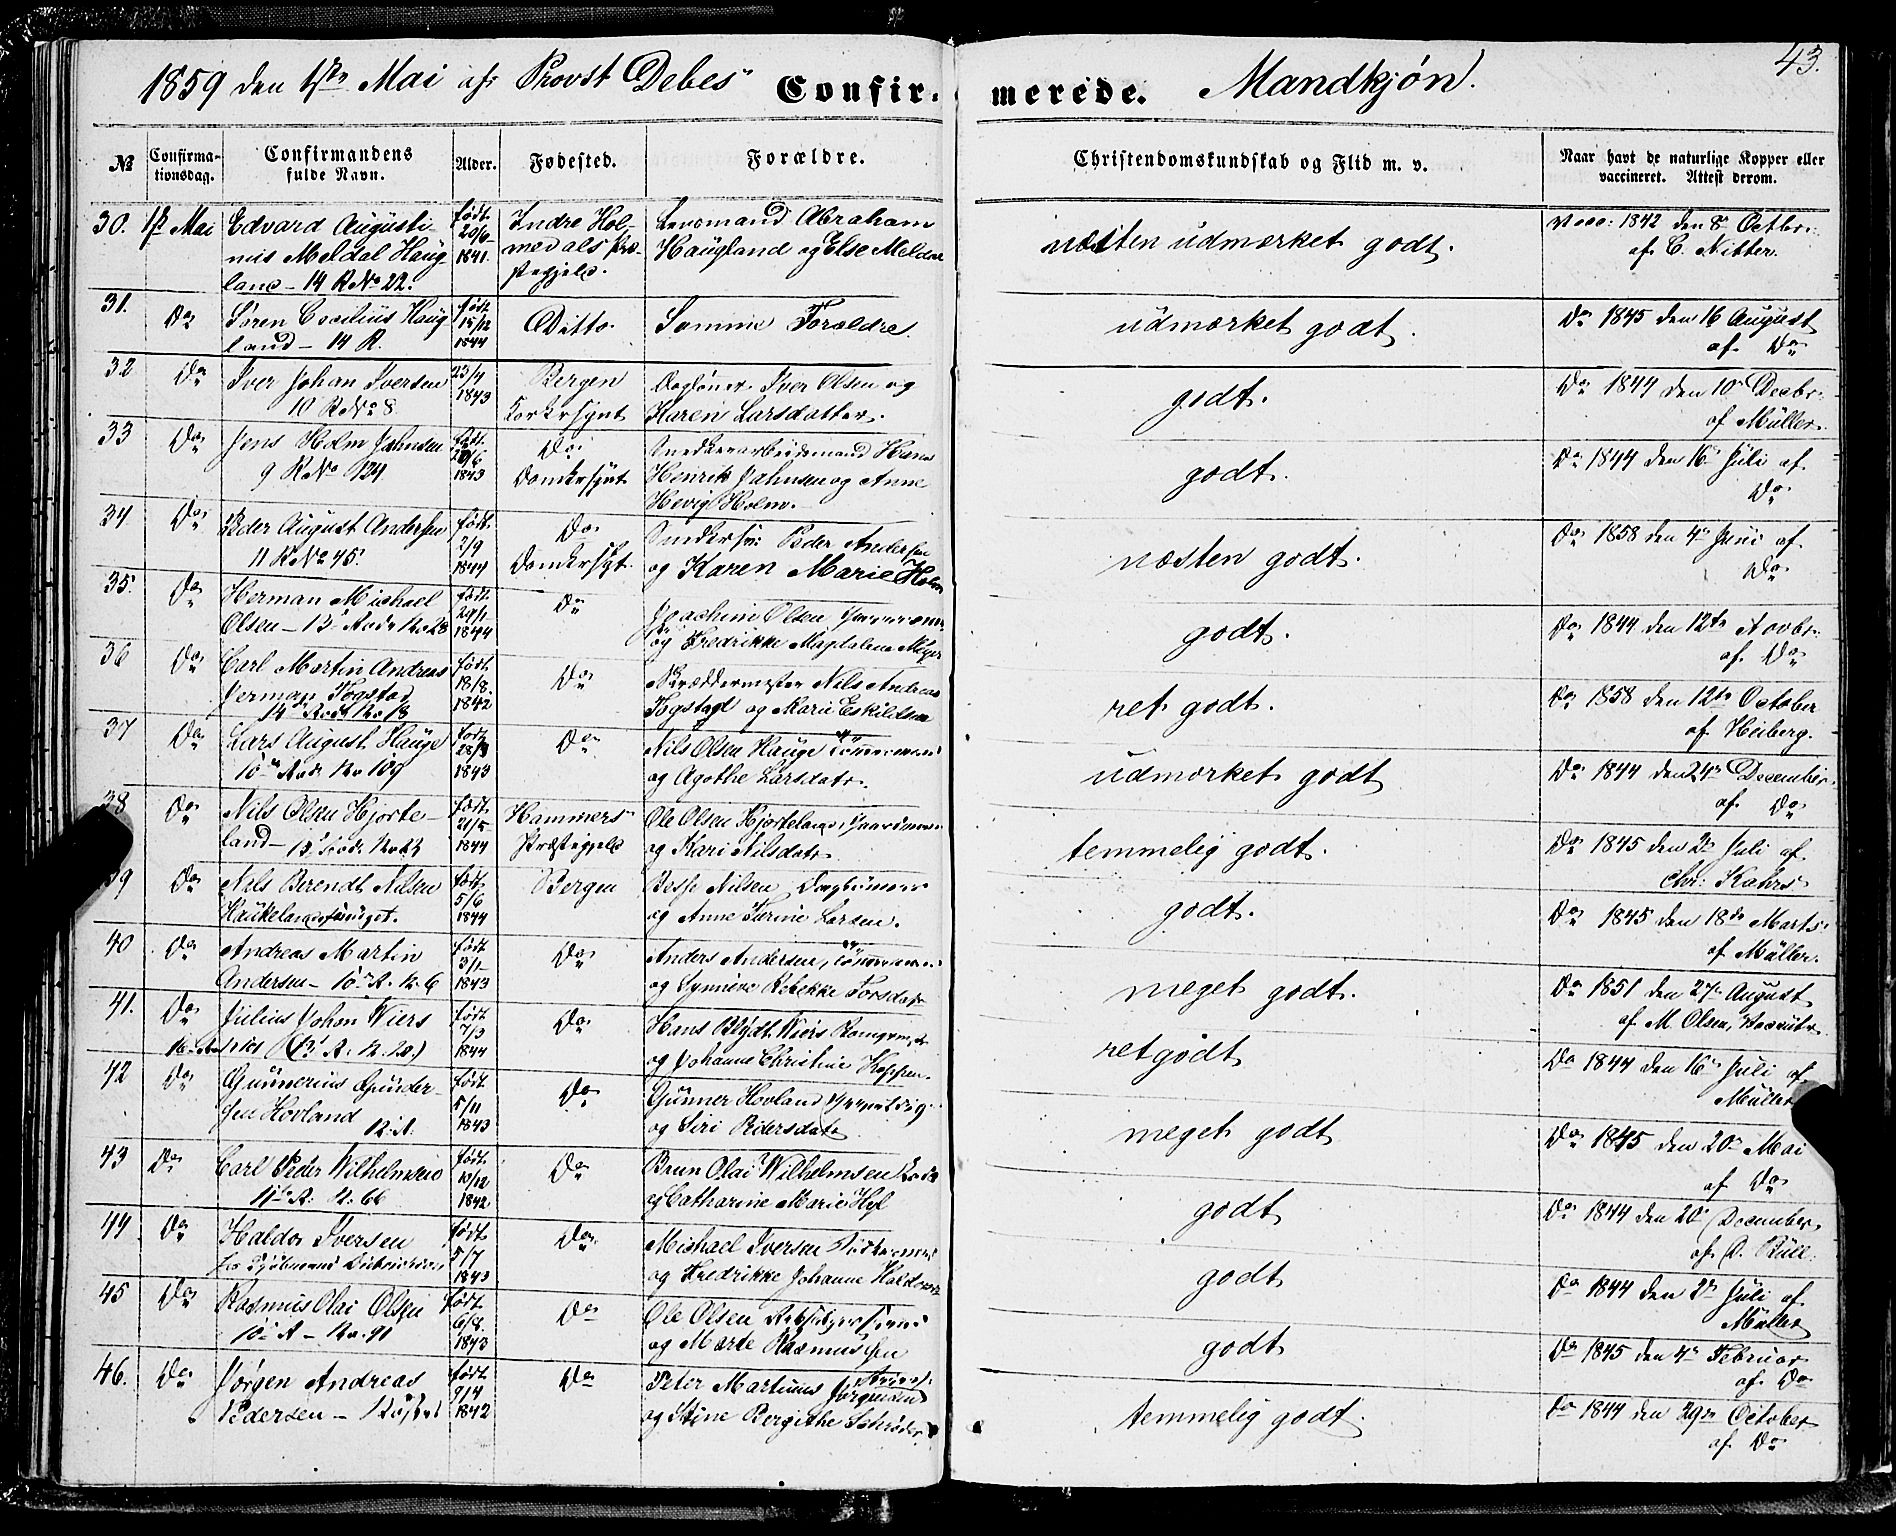 1859 den 1ste Mai af Provst Debes Confir- merede. Mandkjøn. 43.
№ Confirmationsdag. Confirmandens fulde Navn. Alder. Fødested. Forældre. Christendomskundskab og Flid m. v. Naar havt de naturlige Kopper eller vaccineret. Attest derom.
30. 1ste Mai Edvard Augusti- født Indre Hol- Abraham
nus Meldal Haug- 1841 medals Præ- Haugland og Else Meldal næsten udmærket godt. Vacc: 1842 den 8de Octbr:
land - 14 R No 22. stegjeld. af C. Nitter.
31. Do Søren Cecilius Haug- født 15/12 Ditto Samme Forældre. udmærket godt. Do 1845 den 16 August
land - 14 R. 1844 af Do
32 Do Iver Johan Iversen 23/4 Bergen Iver Olsen og godt. Do 1844 den 10 Decbr:
10 R No 8. 1843 Korskrsgnt Karen Larsdatter. af Müller.
33 Do Jens Holm Jahnsen født Do Snedkerarbeidsmand Hans godt. Do 1844 den 16 Juli af
9 R No 124 /6 1843 Domkrsgnt Henrik Jahnsen og Anne Do
Hevig Holm.
34 Do Peder August Andersen født 2/9 Do Peder Andersen næsten godt. Do 1858 den 4de Juni af
11 R No 45. 1844 Domkrsgt. og Karen Marie Holm Do
35. Do Herman Michael født Do Joachim Olsen godt. Do 1844 den 12te Novbr:
Olsen - 13 Rode No 28 1844 og Fredrikke Magdalena Meyer af Do
36 Do Carl Martin Andreas født 18/8 Do Skræddermester Nils Andreas ret godt. Do 1858 den 12te October
Herman Fogstad 1842 og Marie Eskildsen af Heiberg.
14de Rode No 18
37 Do Lars August Hauge født 28/3 Do Nils Olsen Hauge Tømmermand udmærket godt Do 1844 den 24de December
10de Rode No 109 1843 og Agathe Larsdatr. af Do
38 Do Nils Olsen Hjorte- født 21/5 Hammers Ole Olsen Hjorteland, Gaardmand temmelig godt. Do 1845 den 2de Juli af
land - 13 Rode No 1844 Præstegjeld og Kari Nilsdatr. Chr: Kahrs
39 Do Nils Berendt Nilsen født 5/6 Bergen Nilsen godt. Do 1845 den 18de Marts
1844 og Anne Larsen. af Müller.
40 Do Andreas Martin født 3/1 Do Anders Andersen, Tømmermand meget godt. Do 1851 den 27de August
Andersen - 10de R. N. 6 1843 og Synneve Rebekke af M. Olsen,
41. Do Julius Johan Wiers født 7/3 Do Hans Blydt Wiers ret godt Do 1844 den 16de Juli af
(R. N. 20.) 1844 og Johanne Christine Müller
42 Do Gunnerius Gunder- født 5/11 Do Gunner Hovland meget godt Do 1845 den 20de Mai
sen Hovland 1843 og Siri Pedersdatr. af Do
43 Do Carl Peder Wilhelmsen født 10/12 Do Brun Olai Wilhelmsen godt Do 1844 den 20de December
11te R. N. 66 1842 og Catharine Marie af D. Bull.
44 Do Haldor Iversen født 5/7 Do Michael Iversen godt Do 1844 den 2de Juli af
1843 og Fredrikke Johanne Müller
45 Do Rasmus Olai Olsen født 6/8 Do Ole Olsen godt Do 1845 den 4de Februar
10de R - No. 91 1843 og Marte Rasmussen af Do
46. Do Jørgen Andreas født 9/4 Do Peter Martinus Jørgensen temmelig godt. Do 1844 den 29de October
Pedersen - 1842 og Stine Bergithe Schrøder. af Do